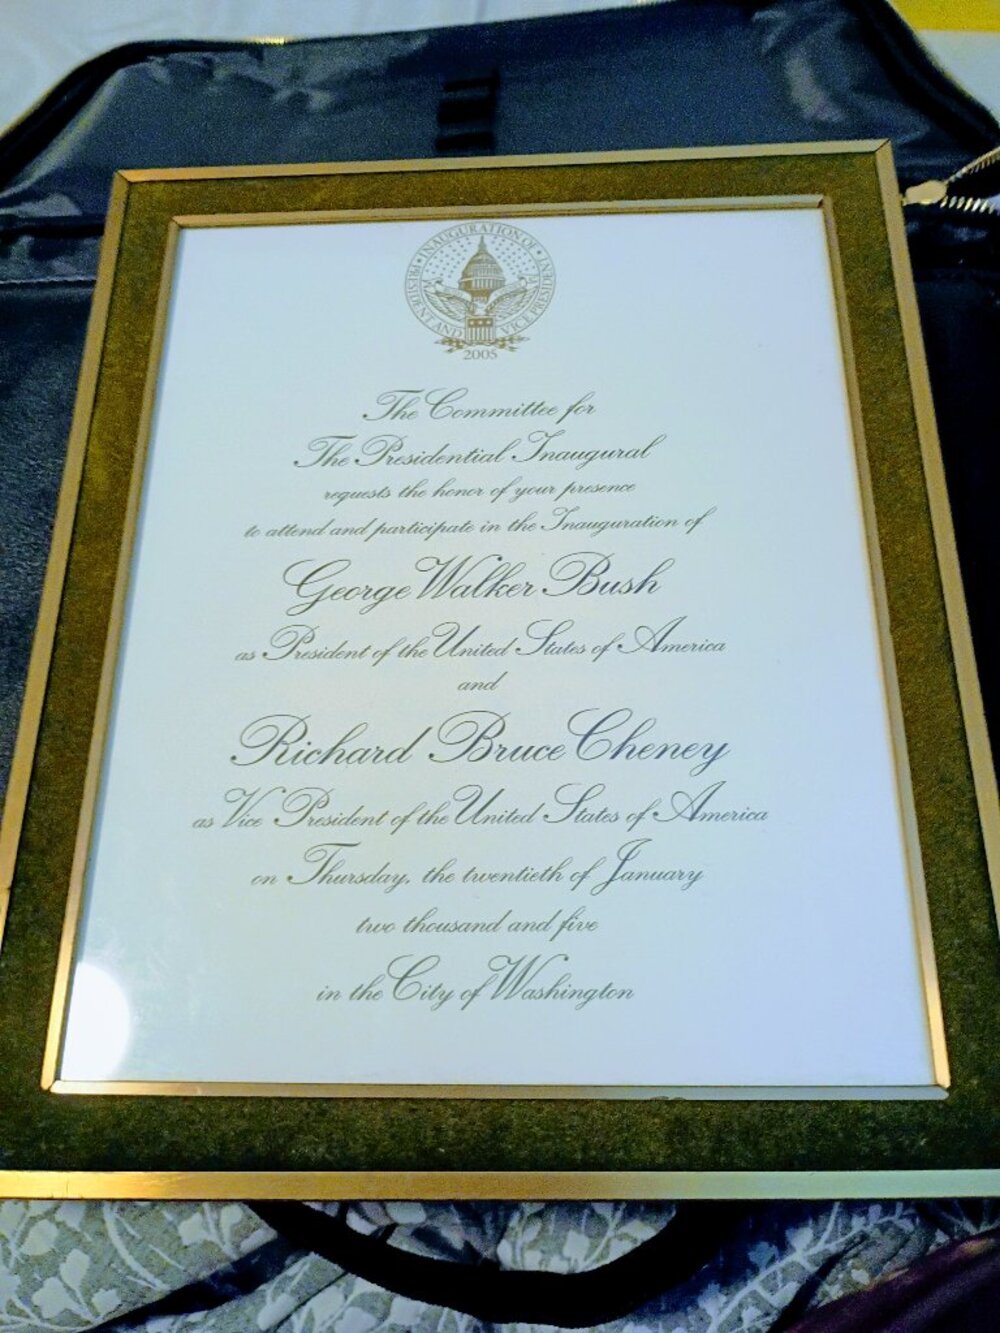 INAUGURATION OF
PRESIDENT AND VICE PRESIDENT
2005
The Committee for
The Presidential Inaugural
requests the honor of your presence
to attend and participate in the Inauguration of
George Walker Bush
as President of the United States of America
and
Richard Bruce Cheney
as Vice President of the United States of America
on Thursday, the twentieth of January
two thousand and five
in the City of Washington